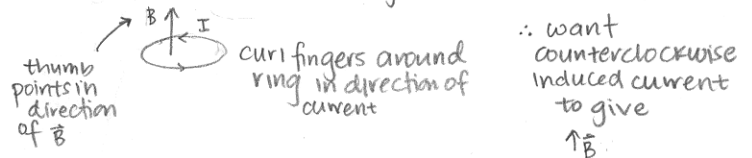 B⃗
I
thumb
points in
direction
of B⃗
curl fingers around
ring in direction of
current
∴ want
counterclockwise
induced current
to give
↑B⃗